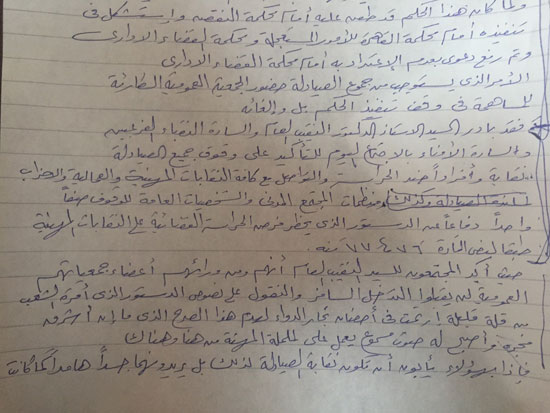 ولما كان هذا الحكم قد طعن عليه أمام محكمة النقض واستشكل فى
تنفيذه أمام محكمة القاهرة للأمور المستعجلة ومحكمة القضاء الادارى
وتم رفع دعوى بعدم الاعتداد به أمام محكمة القضاء الادارى
الأمر الذى يستوجب من جموع الصيادلة حضور الجمعية العمومية الطارئة
للمساهمة فى وقف تنفيذ الحكم بل وإلغائه
فقد بادر السيد الاستاذ الدكتور النقيب العام والسادة النقباء الفرعيين
والسادة الأمناء بالاجتماع اليوم للتأكيد على وقوف جميع الصيادلة
نقابة وأفراداً ضد الحراسة والتواصل مع كافة النقابات المهنية والعمالية والأحزاب
الصيادلة وكذلك ومنظمات المجتمع المدنى والشخصيات العامة للوقوف صفاً
واحداً دفاعاً عن الدستور الذى يحظر فرض الحراسة القضائية على النقابات المهنية
طبقا لنص المادة ٧٦ و ٧٧ منه.
حيث أكد المجتمعون للسيد النقيب العام أنهم ومن ورائهم أعضاء جمعياتهم
العمومية لن يقبلوا التدخل السافر والتغول على نصوص الدستور الذى أقره الشعب
من قلة قليلة ارتمت فى أحضان تجار الدواء لهدم هذا الصرح الذى ما إن أشرقت
وأصبح له صوت مسموع يعمل على المهنة من هنا وهناك
فإذا بهؤلاء يأبون أن تكون نقابة الصيادلة كذلك بل يريدونها جسداً هامداً كما كانت